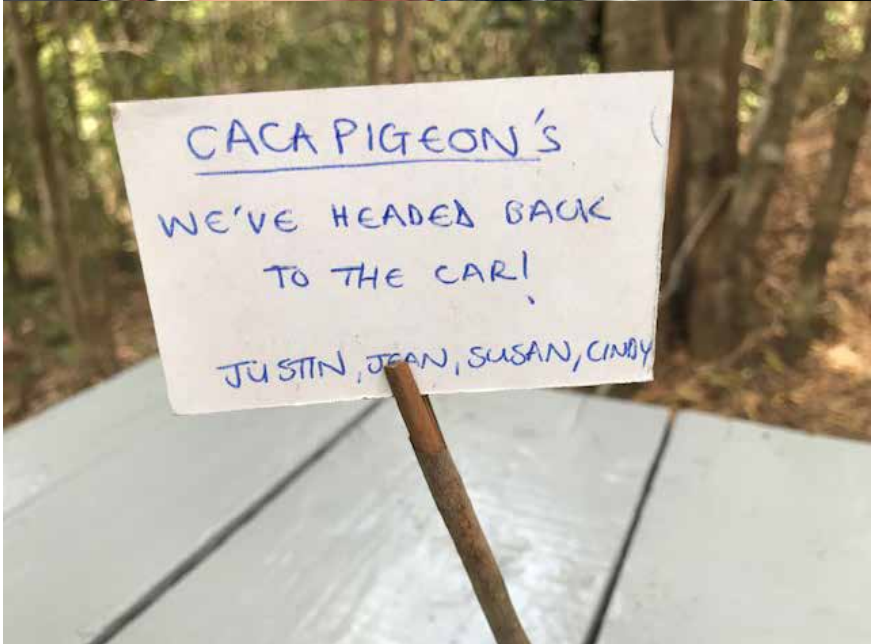 CACA PIGEON'S
WE'VE HEADED BACK
TO THE CAR!
JUSTIN, JEAN, SUSAN, CINDY